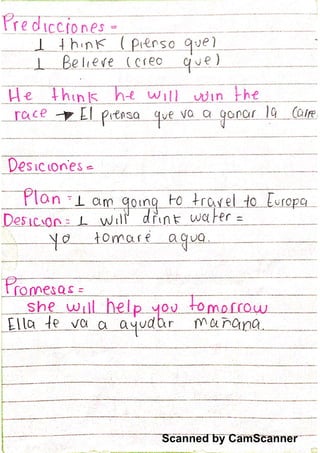 Predicciones =
I think (pienso que)
I Believe (creo que)
He think he will win the
race → El piensa que va a ganar la carre
Desiciones =
Plan = I am going to travel to Europa
Desicion = I will drink water =
yo tomaré agua.
Promesas =
she will help you tomorrow
Ella te va a ayudar mañana.
Scanned by CamScanner